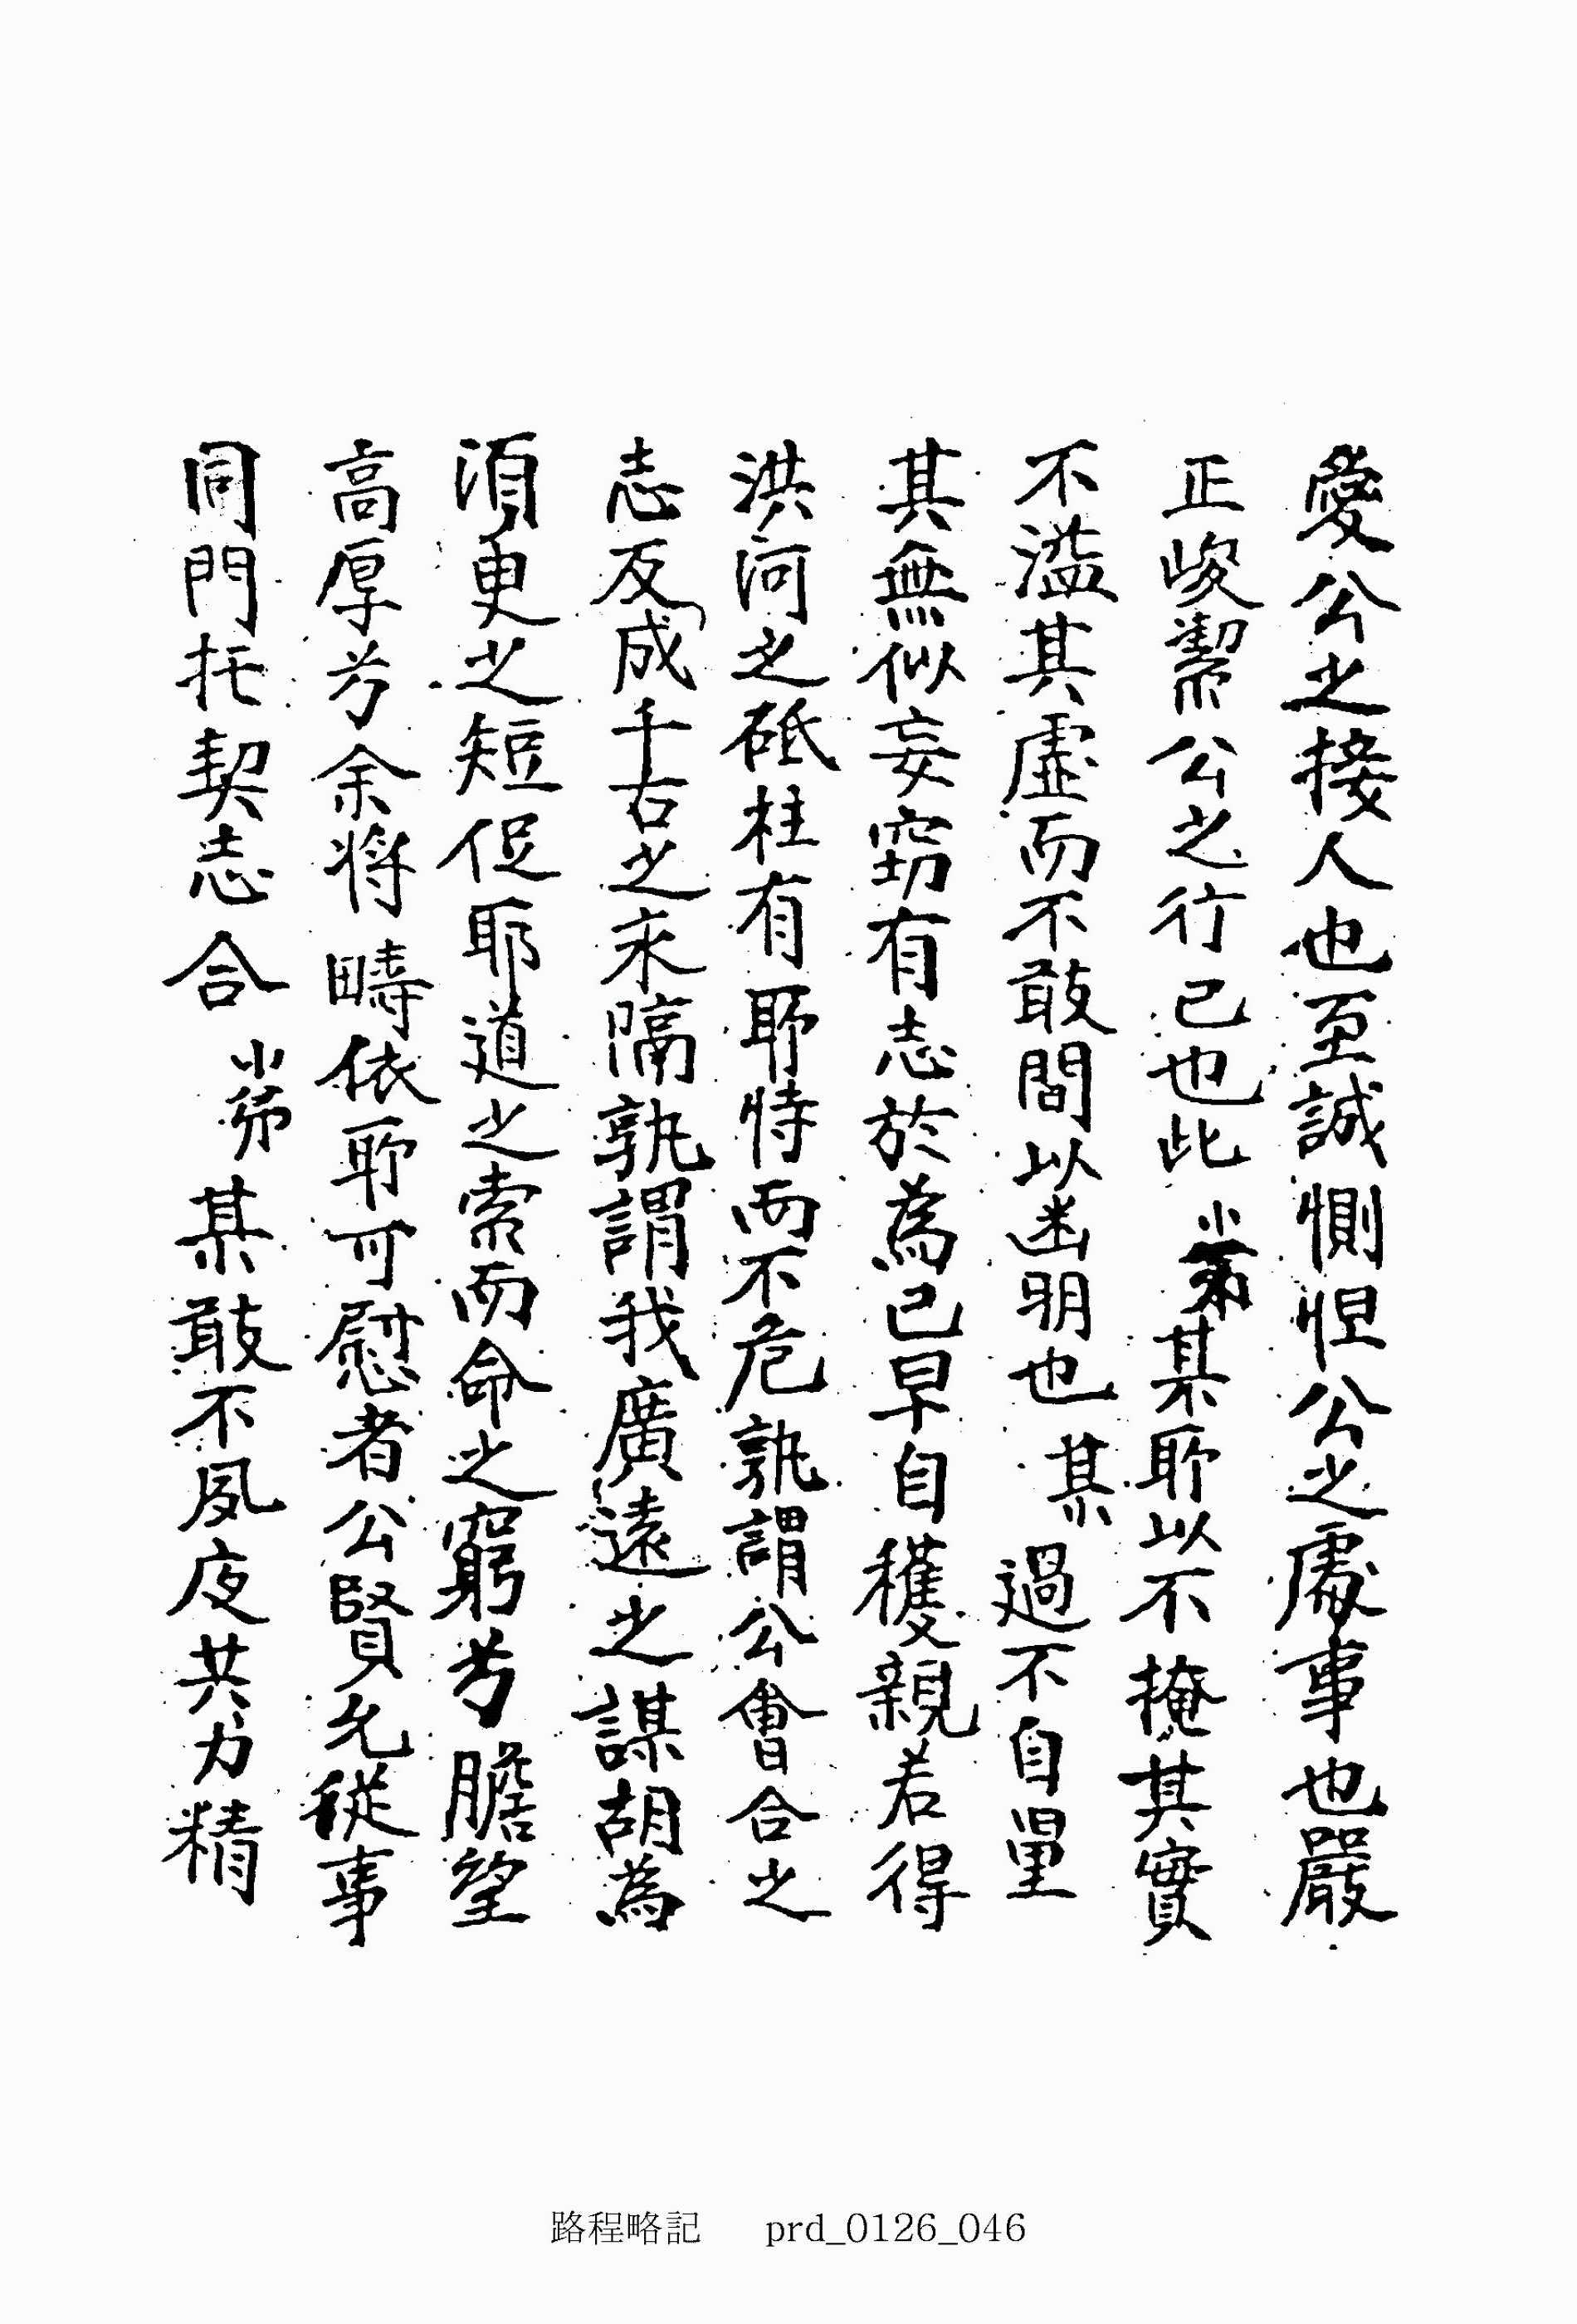 愛公之接人也至誠惻怛公之處事也嚴
正峻潔公之行己也此小弟某所以不掩其實
不溢其虛而不敢間以幽明也某過不自量
其無似妄窃有志於為己早自穫親若得
洪河之砥柱有所恃而不危孰謂公會合之
志反成千古之永隔孰謂我廣遠之謀胡為
須臾之短促耶道之索而命之窮兮瞻望
高厚兮余將疇依所可慰者公賢允從事
同門托契志合小弟某敢不夙夜共力精
路程略記 prd_0126_046